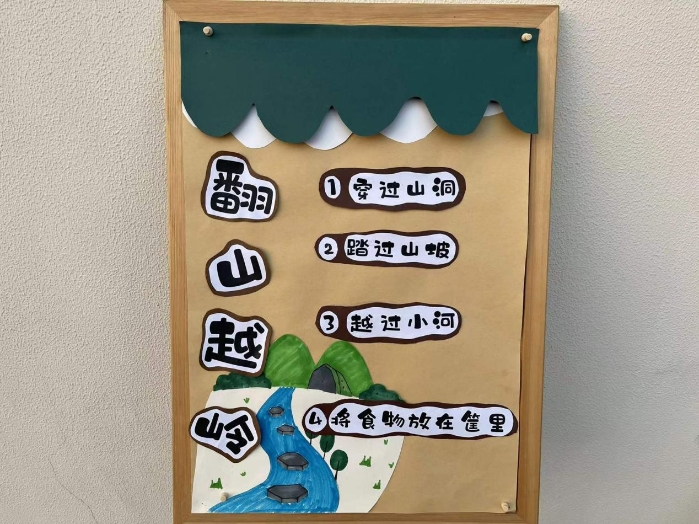 翻山越岭
1 穿过山洞
2 踏过山坡
3 越过小河
4 将食物放在筐里